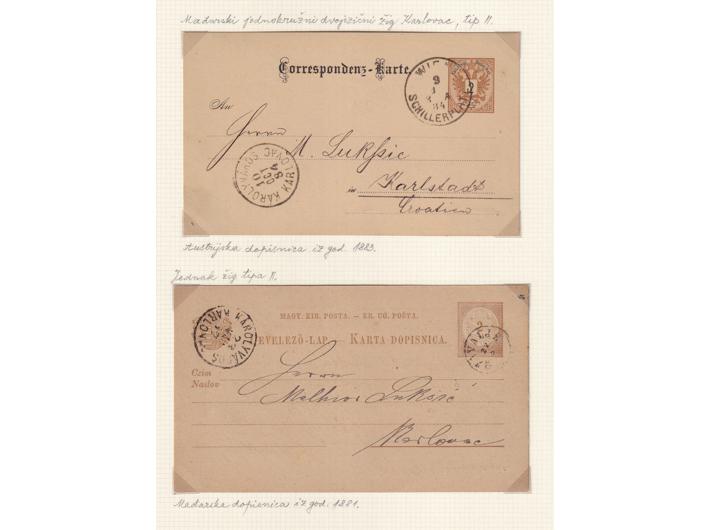 Mađarski jednokružni dvojezični žig Karlovac, tip II.
Correspondenz-Karte.
WIEN
SCHILLERPLATZ
9
1
84
An
Herrn M. Lukšić
KAROLYVÁROS KARLOVAC
in Karlstadt
Croatien
Austrijska dopisnica iz god. 1883.
Jednak žig tipa II.
MAGY. KIR. POSTA. — KR. UG. POŠTA.
LEVELEZŐ-LAP — KARTA DOPISNICA.
KÁROLYVÁROS KARLOVAC
Czim
Naslov
Herrn
Melhior Lukšić
Karlovac
Mađarska dopisnica iz god. 1881.